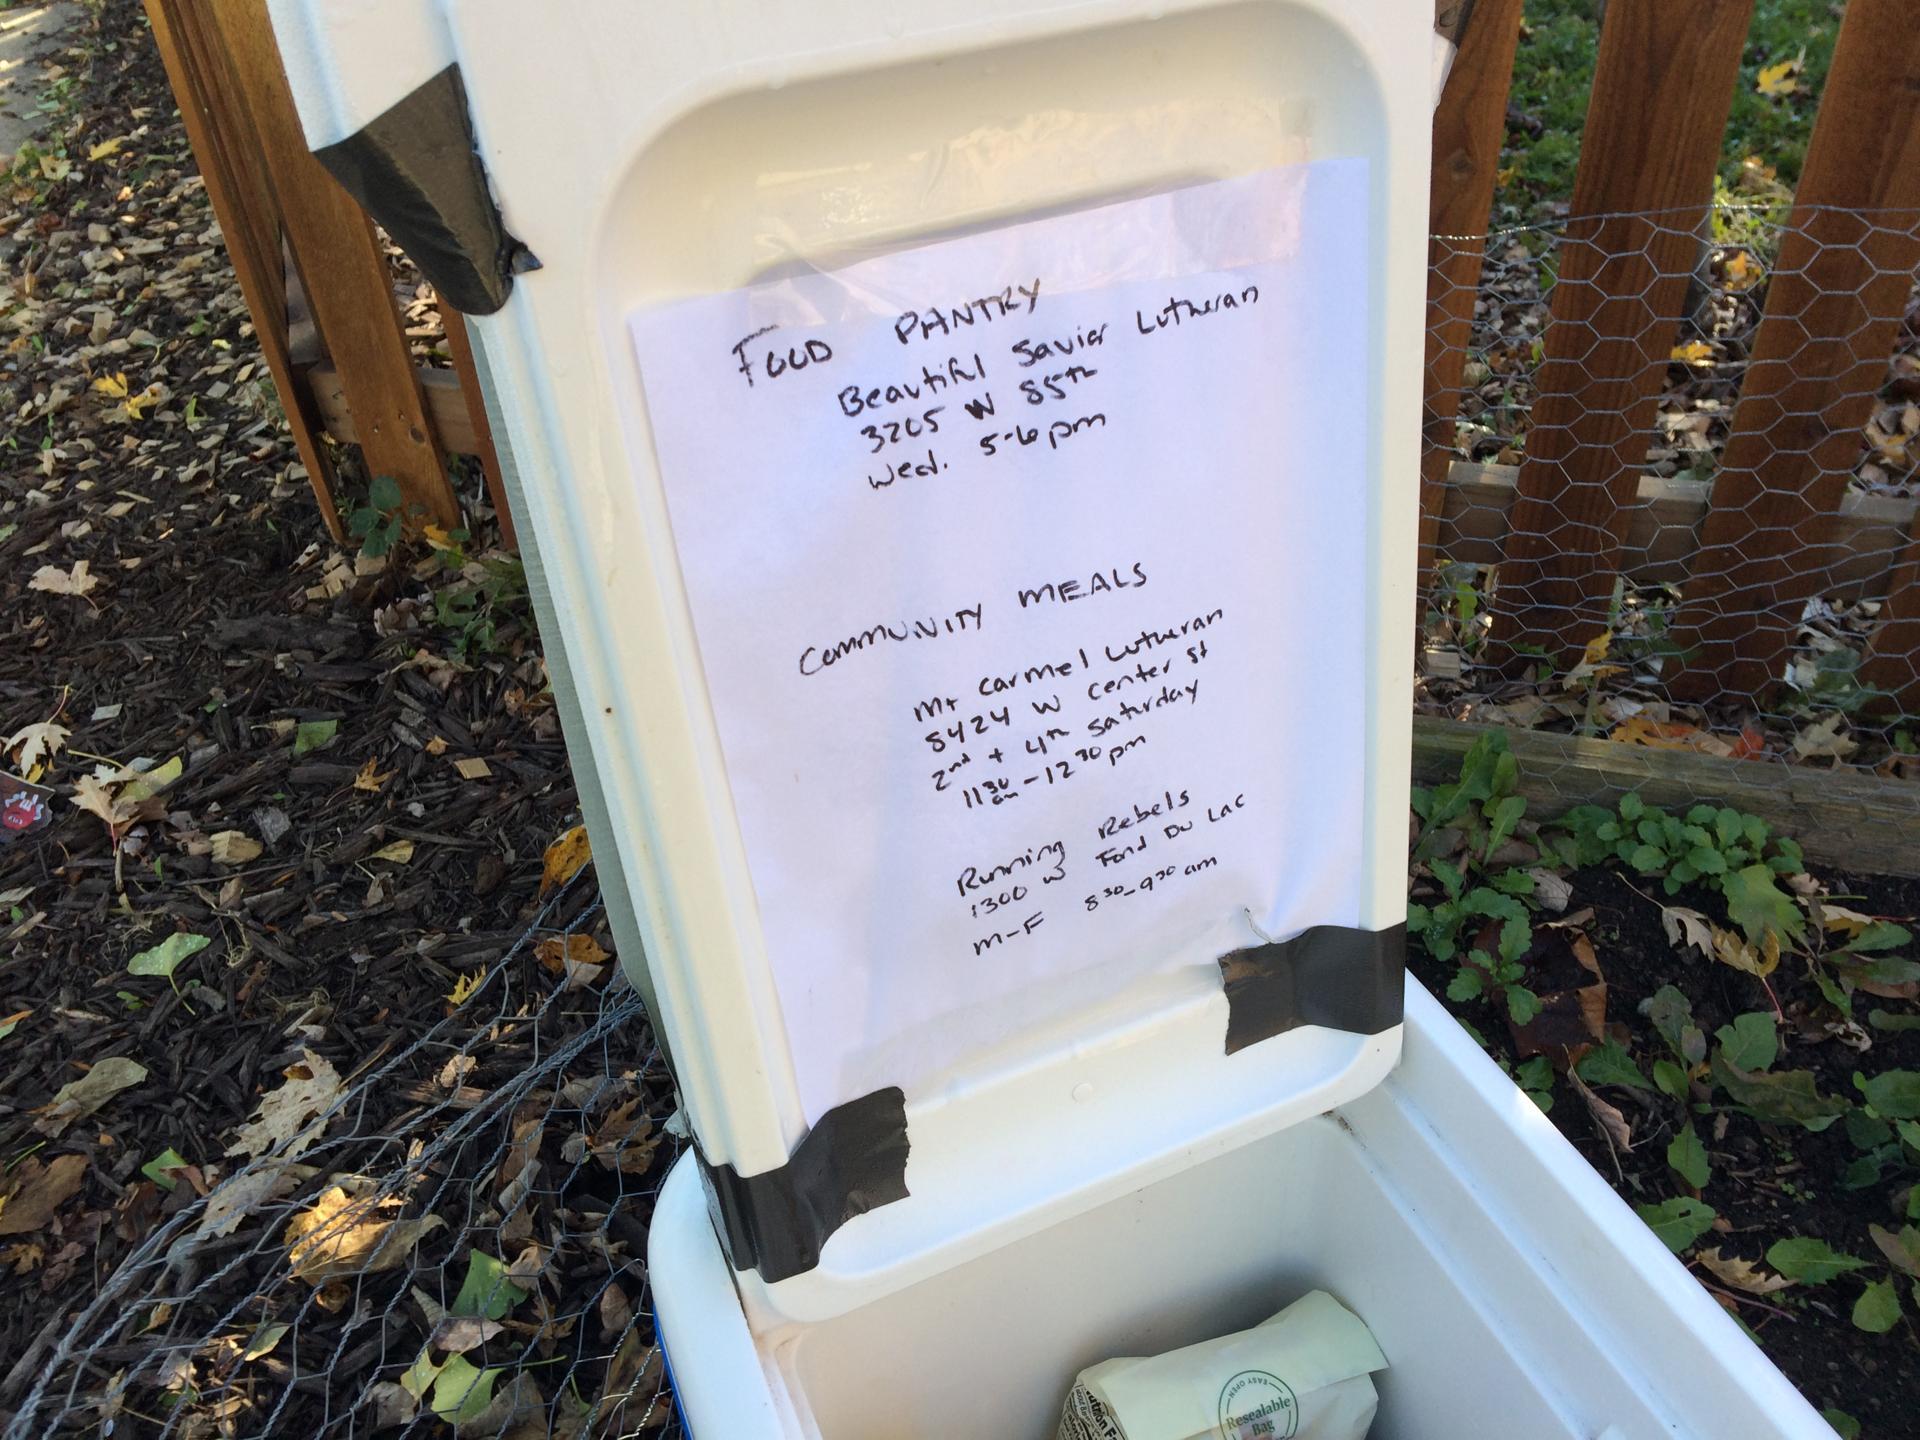 FOOD PANTRY
Beautiful Savior Lutheran
3205 W 85th
Wed. 5-6 pm
COMMUNITY MEALS
Mt Carmel Lutheran
8424 W Center St
2nd + 4th Saturday
11 30 am - 12 30 pm
Running Rebels
1300 W Fond Du Lac
M-F 8 30 - 9 30 am
EASY OPEN
Resealable
Bag